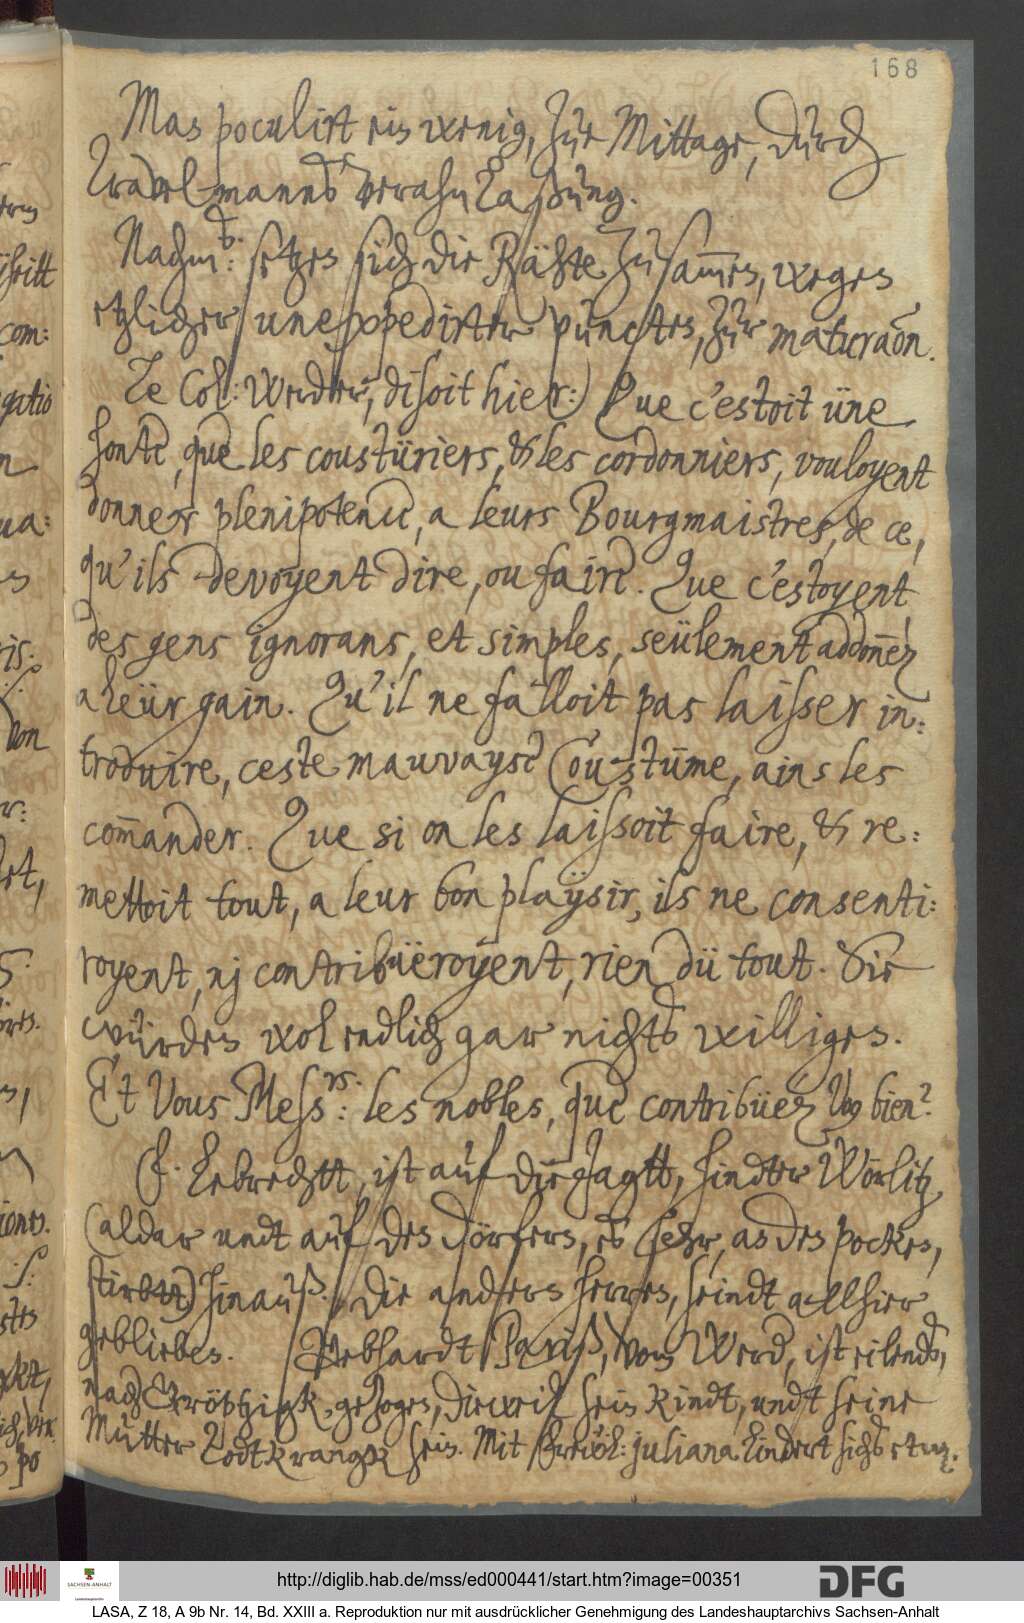 168
Man poculirt ein wenig, zur Mittage, durch
veranlaßung.
Nachm: setzen sich die Rähte zusam̄en, wegen
etzlicher unexpedirter puncten, zur maturaōn.
Le Col: Werder, disoit hier: Que c'estoit üne
honte, que les coustüriers, & les cordonniers, vouloyent
donner plenipotence, a leurs Bourgmaistres, de ce,
qu'ils devoyent dire, ou faire. Que c'estoyent,
des gens ignorans, et simples, seülement addon̄ez
a leür gain. Qu'il ne falloit pas laisser in:
troduire, ceste mauvayse Coustüme, ains les
com̄ander. Que si on les laissoit faire, & re:
mettoit tout, a leur bon playsir, ils ne consenti:
royent, nj contribüeroyent, rien dü tout. Sie
würden wol endlich gar nichts willigen.
Et Vous Mess.rs: les nobles, que contribüez vous bien?
F. Lebrecht, ist auf die Jagtt, hindter Wörlitz,
(aldar undt auf den dörfern, es sehr, an den pocken,
stirbtt) hinauß. Die andern herren, seindt allhier
geblieben. Gebhardt Pariß, von Werd, ist eilends,
nach Gröbtzigk, gezogen, dieweil sein Kindt, undt seine
Mutter Todtkrangk sein. Mit frewl: Juliana lindert sichs etw.
http://diglib.hab.de/mss/ed000441/start.htm?image=00351
DFG
SACHSEN-ANHALT
LASA, Z 18, A 9b Nr. 14, Bd. XXIII a. Reproduktion nur mit ausdrücklicher Genehmigung des Landeshauptarchivs Sachsen-Anhalt